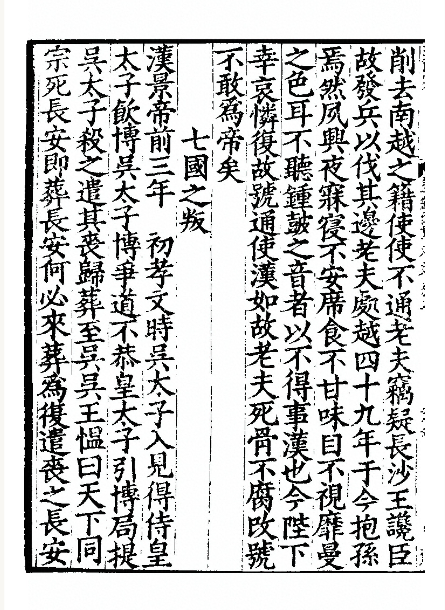 削去南越之籍使使不通老夫竊疑長沙王讒臣
故發兵以伐其邊老夫處越四十九年于今抱孫
焉然夙興夜寐寢不安席食不甘味目不視靡曼
之色耳不聽鍾鼓之音者以不得事漢也今陛下
幸哀憐復故號通使漢如故老夫死骨不腐改號
不敢為帝矣
七國之叛
漢景帝前三年　初孝文時吳太子入見得侍皇
太子飲博吳太子博爭道不恭皇太子引博局提
吳太子殺之遣其喪歸葬至吳吳王慍曰天下同
宗死長安即葬長安何必來葬為復遣喪之長安